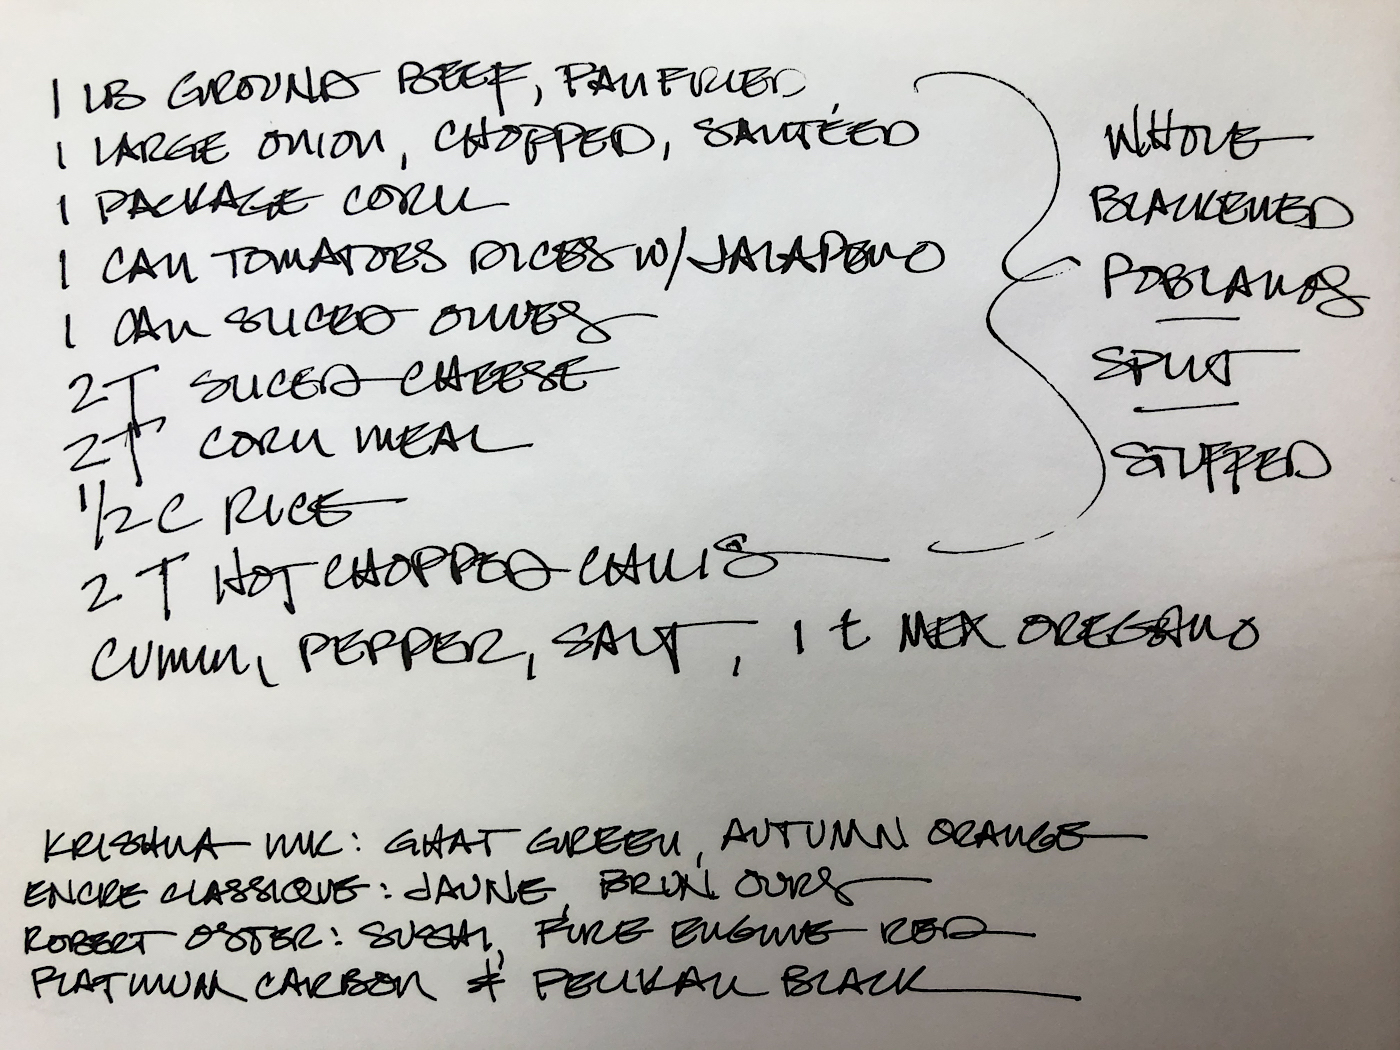 1 LB GROUND BEEF, PAN FRIED
1 LARGE ONION, CHOPPED, SAUTÉED
1 PACKAGE CORN
1 CAN TOMATOES DICES W/JALAPENO
1 CAN SLICED OLIVES
2T SLICED CHEESE
2T CORN MEAL
1/2 C RICE
2 T HOT CHOPPED CHILIS
CUMIN, PEPPER, SALT, 1 t MEX OREGANO
WHOLE
BLACKENED
POBLANOS
SPLIT
STUFFED
KRISHNA INK: GHAT GREEN, AUTUMN ORANGE
ENCRE CLASSIQUE: JAUNE, BRUN OURS
ROBERT OSTER: SUSHI, FIRE ENGINE RED
PLATINUM CARBON & PELIKAN BLACK